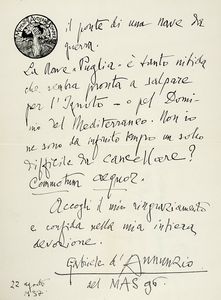 il ponte di una nave da
guerra.
La Nave "Puglia" è tanto nitida
che sembra pronta a salpare
per l'Ignoto – o pel Domi-
nio del Mediterraneo. Non io
ne sono da infinito tempo un solco
difficile da cancellare?
Commotum aequor.
Accogli il mio ringraziamento
e confida nella mia intiera
devozione.
Gabriele d'Annunzio
del MAS 96.
22 agosto
1937